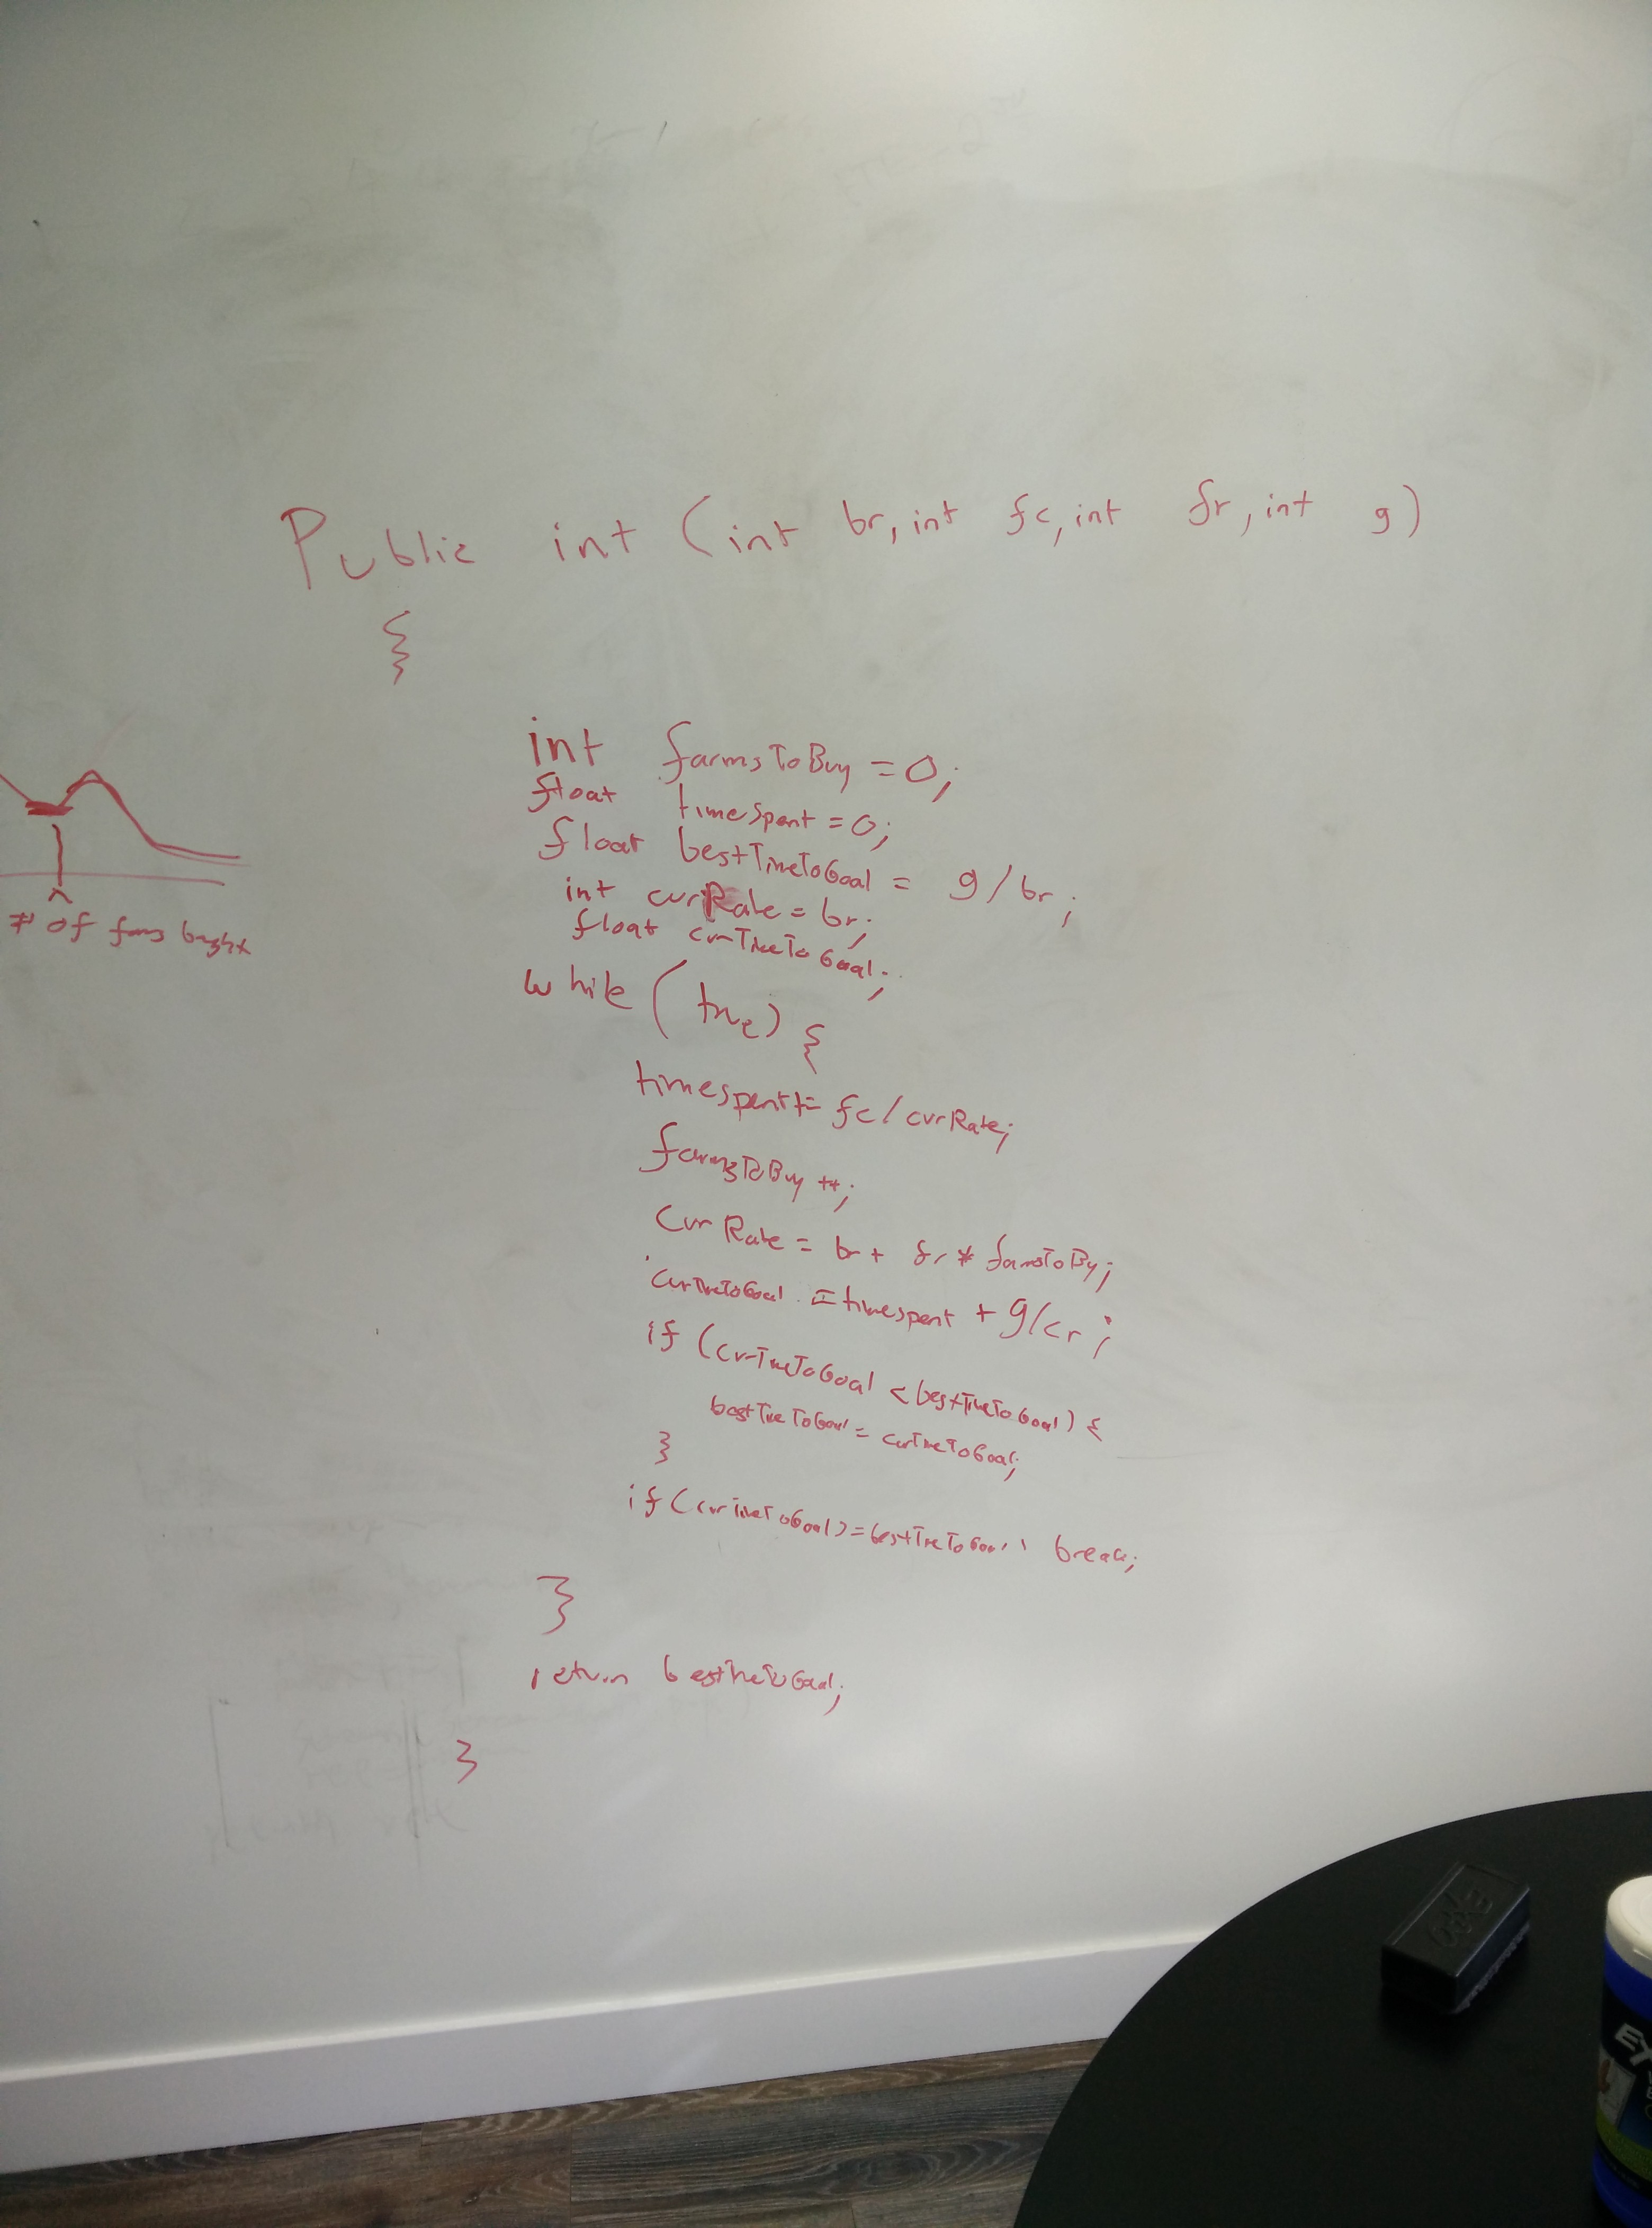 Public int (int br, int fc, int fr, int g)
{
int farmsToBuy = 0;
float timespent = 0;
float bestTimeToGoal = g/br;
int currRate = br;
float curTimeToGoal;
while (true) {
timespent += fc/currRate;
farmsToBuy ++;
CurrRate = br + fr * farmsToBuy;
curTimeToGoal = timespent + g/cr;
if (curTimeToGoal < bestTimeToGoal) {
bestTimeToGoal = curTimeToGoal;
}
if (curTimeToGoal >= bestTimeToGoal) break;
}
return bestTimeToGoal;
}
# of farms bought
EXPO
EX